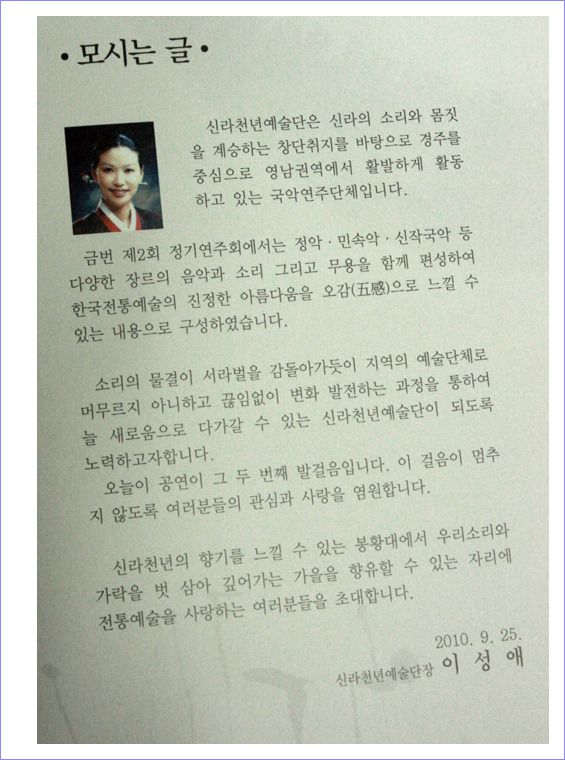 • 모시는 글 •
신라천년예술단은 신라의 소리와 몸짓
을 계승하는 창단취지를 바탕으로 경주를
중심으로 영남권역에서 활발하게 활동
하고 있는 국악연주단체입니다.
금번 제2회 정기연주회에서는 정악 · 민속악 · 신작국악 등
다양한 장르의 음악과 소리 그리고 무용을 함께 편성하여
한국전통예술의 진정한 아름다움을 오감(五感)으로 느낄 수
있는 내용으로 구성하였습니다.
소리의 물결이 서라벌을 감돌아가듯이 지역의 예술단체로
머무르지 아니하고 끊임없이 변화 발전하는 과정을 통하여
늘 새로움으로 다가갈 수 있는 신라천년예술단이 되도록
노력하고자합니다.
오늘이 공연이 그 두 번째 발걸음입니다. 이 걸음이 멈추
지 않도록 여러분들의 관심과 사랑을 염원합니다.
신라천년의 향기를 느낄 수 있는 봉황대에서 우리소리와
가락을 벗 삼아 깊어가는 가을을 향유할 수 있는 자리에
전통예술을 사랑하는 여러분들을 초대합니다.
2010. 9. 25.
신라천년예술단장 이 성 애